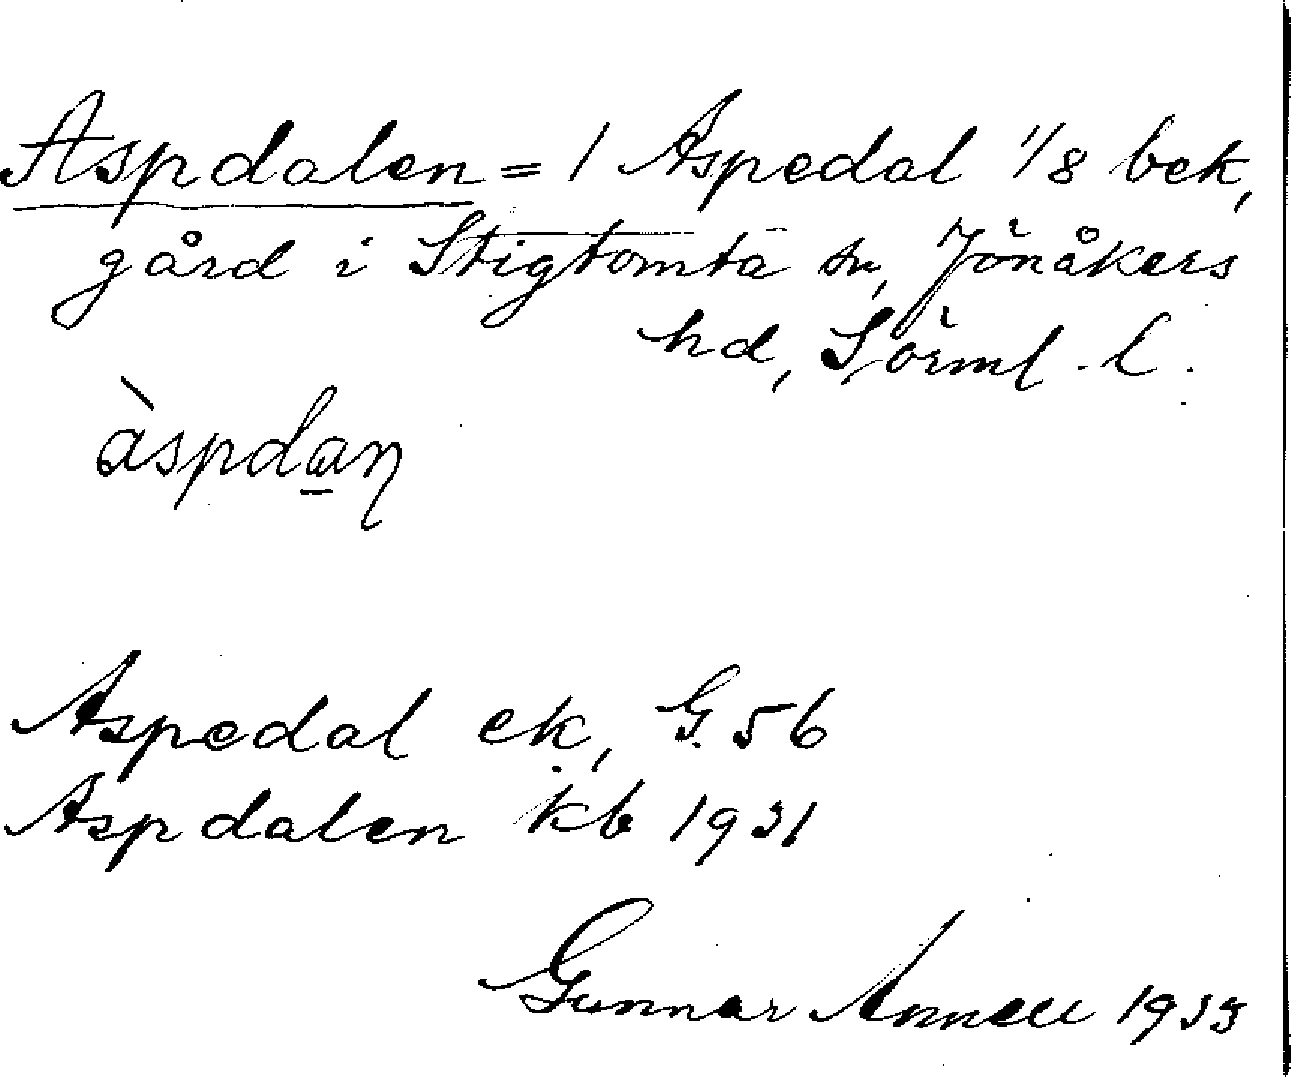 Aspdalen = 1 Aspedal 1/8 bek,
gård i Stigtomta sn, Jönåkers
hd, Sörml. l.
àspda̲ŋ
Aspedal ek, G. 56
Aspdalen kb 1931
Gunnar Annell 1933